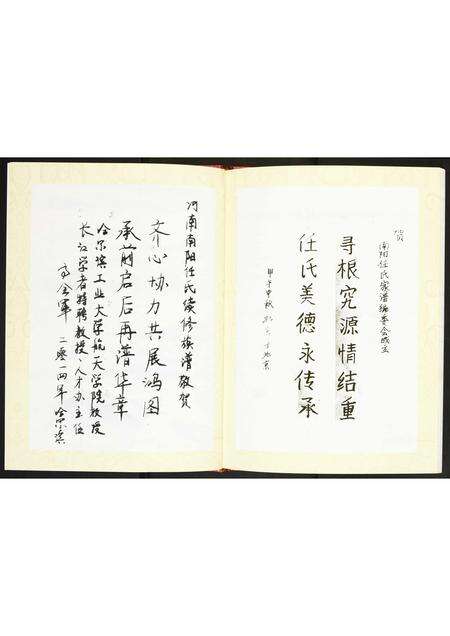 贺
南阳任氏家谱编委会成立
寻根究源情结重
任氏美德永传承
甲午中秋 于北京
河南南阳任氏续修族谱敬贺
齐心协力共展鸿图
承前启后再谱华章
哈尔滨工业大学航天学院教授
长江学者特聘教授、人才办主任
高会军 二〇一四年 哈尔滨